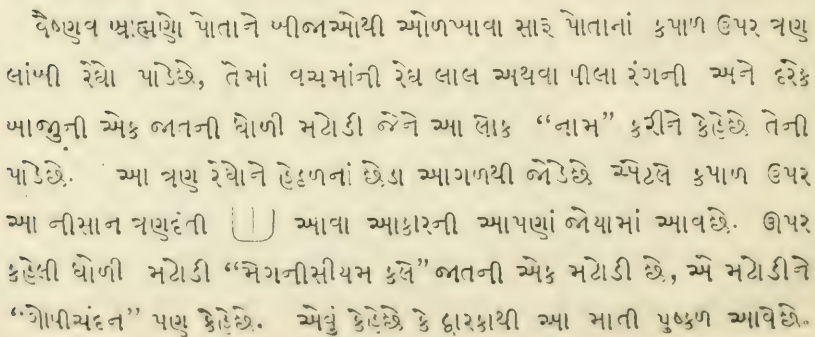 વૈષ્ણવ બ્રાહ્મણો પોતાને બીજાઓથી ઓળખાવા સારૂ પોતાનાં કપાળ ઉપર ત્રણ
લાંબી રેઘો પાડેછે, તેમાં વચમાંની રેઘ લાલ અથવા પીલા રંગની અને દરેક
બાજુની એક જાતની ધોળી મટોડી જેને આ લોક “નામ” કરીને કેહેછે તેની
પાડેછે. આ ત્રણ રેઘોને હેઠળનાં છેડા આગળથી જોડેછે એટલે કપાળ ઉપર
આ નીસાન ત્રણદંતી આવા આકારની આપણાં જોયામાં આવછે. ઊપર
કહેલી ધોળી મટોડી “મેગનીસીયમ કલે” જાતની એક મટોડી છે, એ મટોડીને
“ગોપીચંદન” પણ કેહેછે. એવું કેહેછે કે દ્વારકાથી આ માતી પુષ્કળ આવેછે.